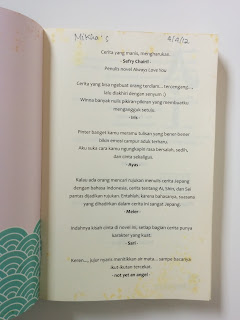 Cerita yang manis, mengharukan.
- Sefry Chairil -
Penulis novel Always Love You
Cerita yang bisa ngebuat orang terdiam, tercengang...,
lalu diakhiri dengan senyum :)
Winna banyak nulis pikiran-pikiran yang membuatku
mengangguk setuju.
- Iris -
Pinter banget kamu meramu tulisan yang bener-bener
bikin emosi campur aduk terharu.
Aku suka cara kamu ngungkapin rasa bersalah, sedih,
dan cinta sekaligus.
- Ayas -
Kalau ada orang mencari rujukan menulis cerita Jepang
dengan bahasa Indonesia, cerita tentang Ai, Shin, dan Sei
pantas dijadikan rujukan. Entahlah, karena bahasanya, suasana
yang dihadirkan dalam cerita ini sangat Jepang.
- Meier -
Indahnya kisah cinta di novel ini, setiap bagian cerita punya
karakter yang kuat.
- Sari -
Keren..., jujur nyaris menitikkan air mata... sampe hasianya
ikut-ikutan tercekat.
- not yet an angel -